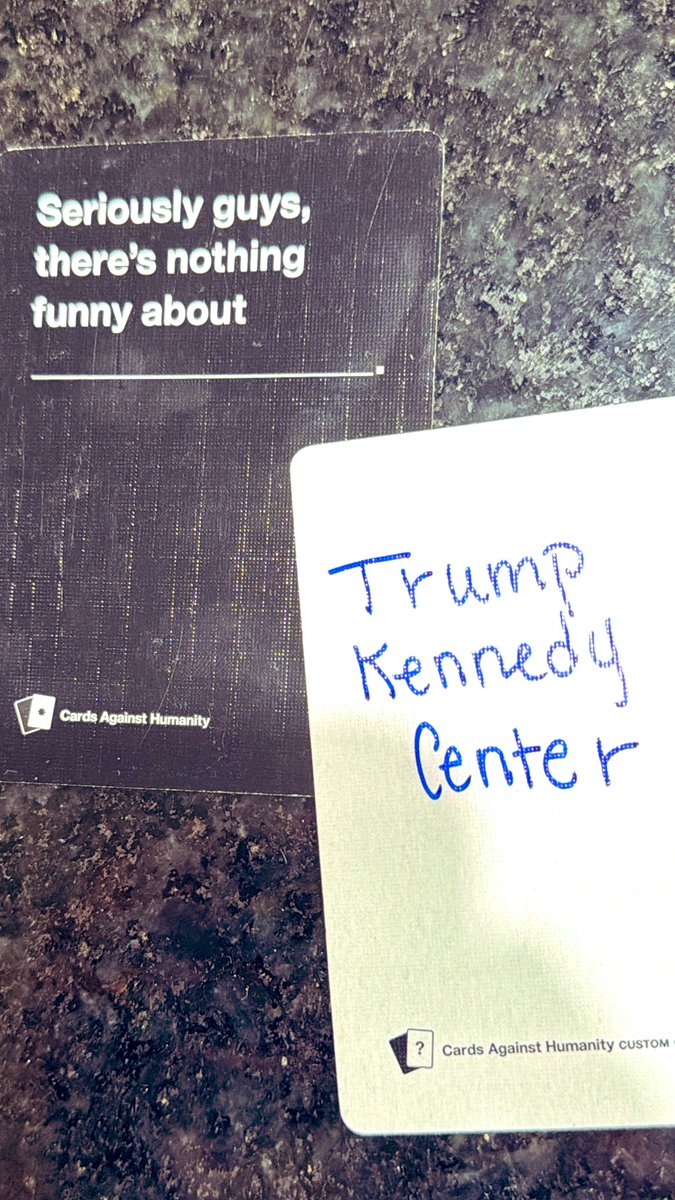 Seriously guys,
there's nothing
funny about
Cards Against Humanity
Trump
Kennedy
Center
?
Cards Against Humanity CUSTOM